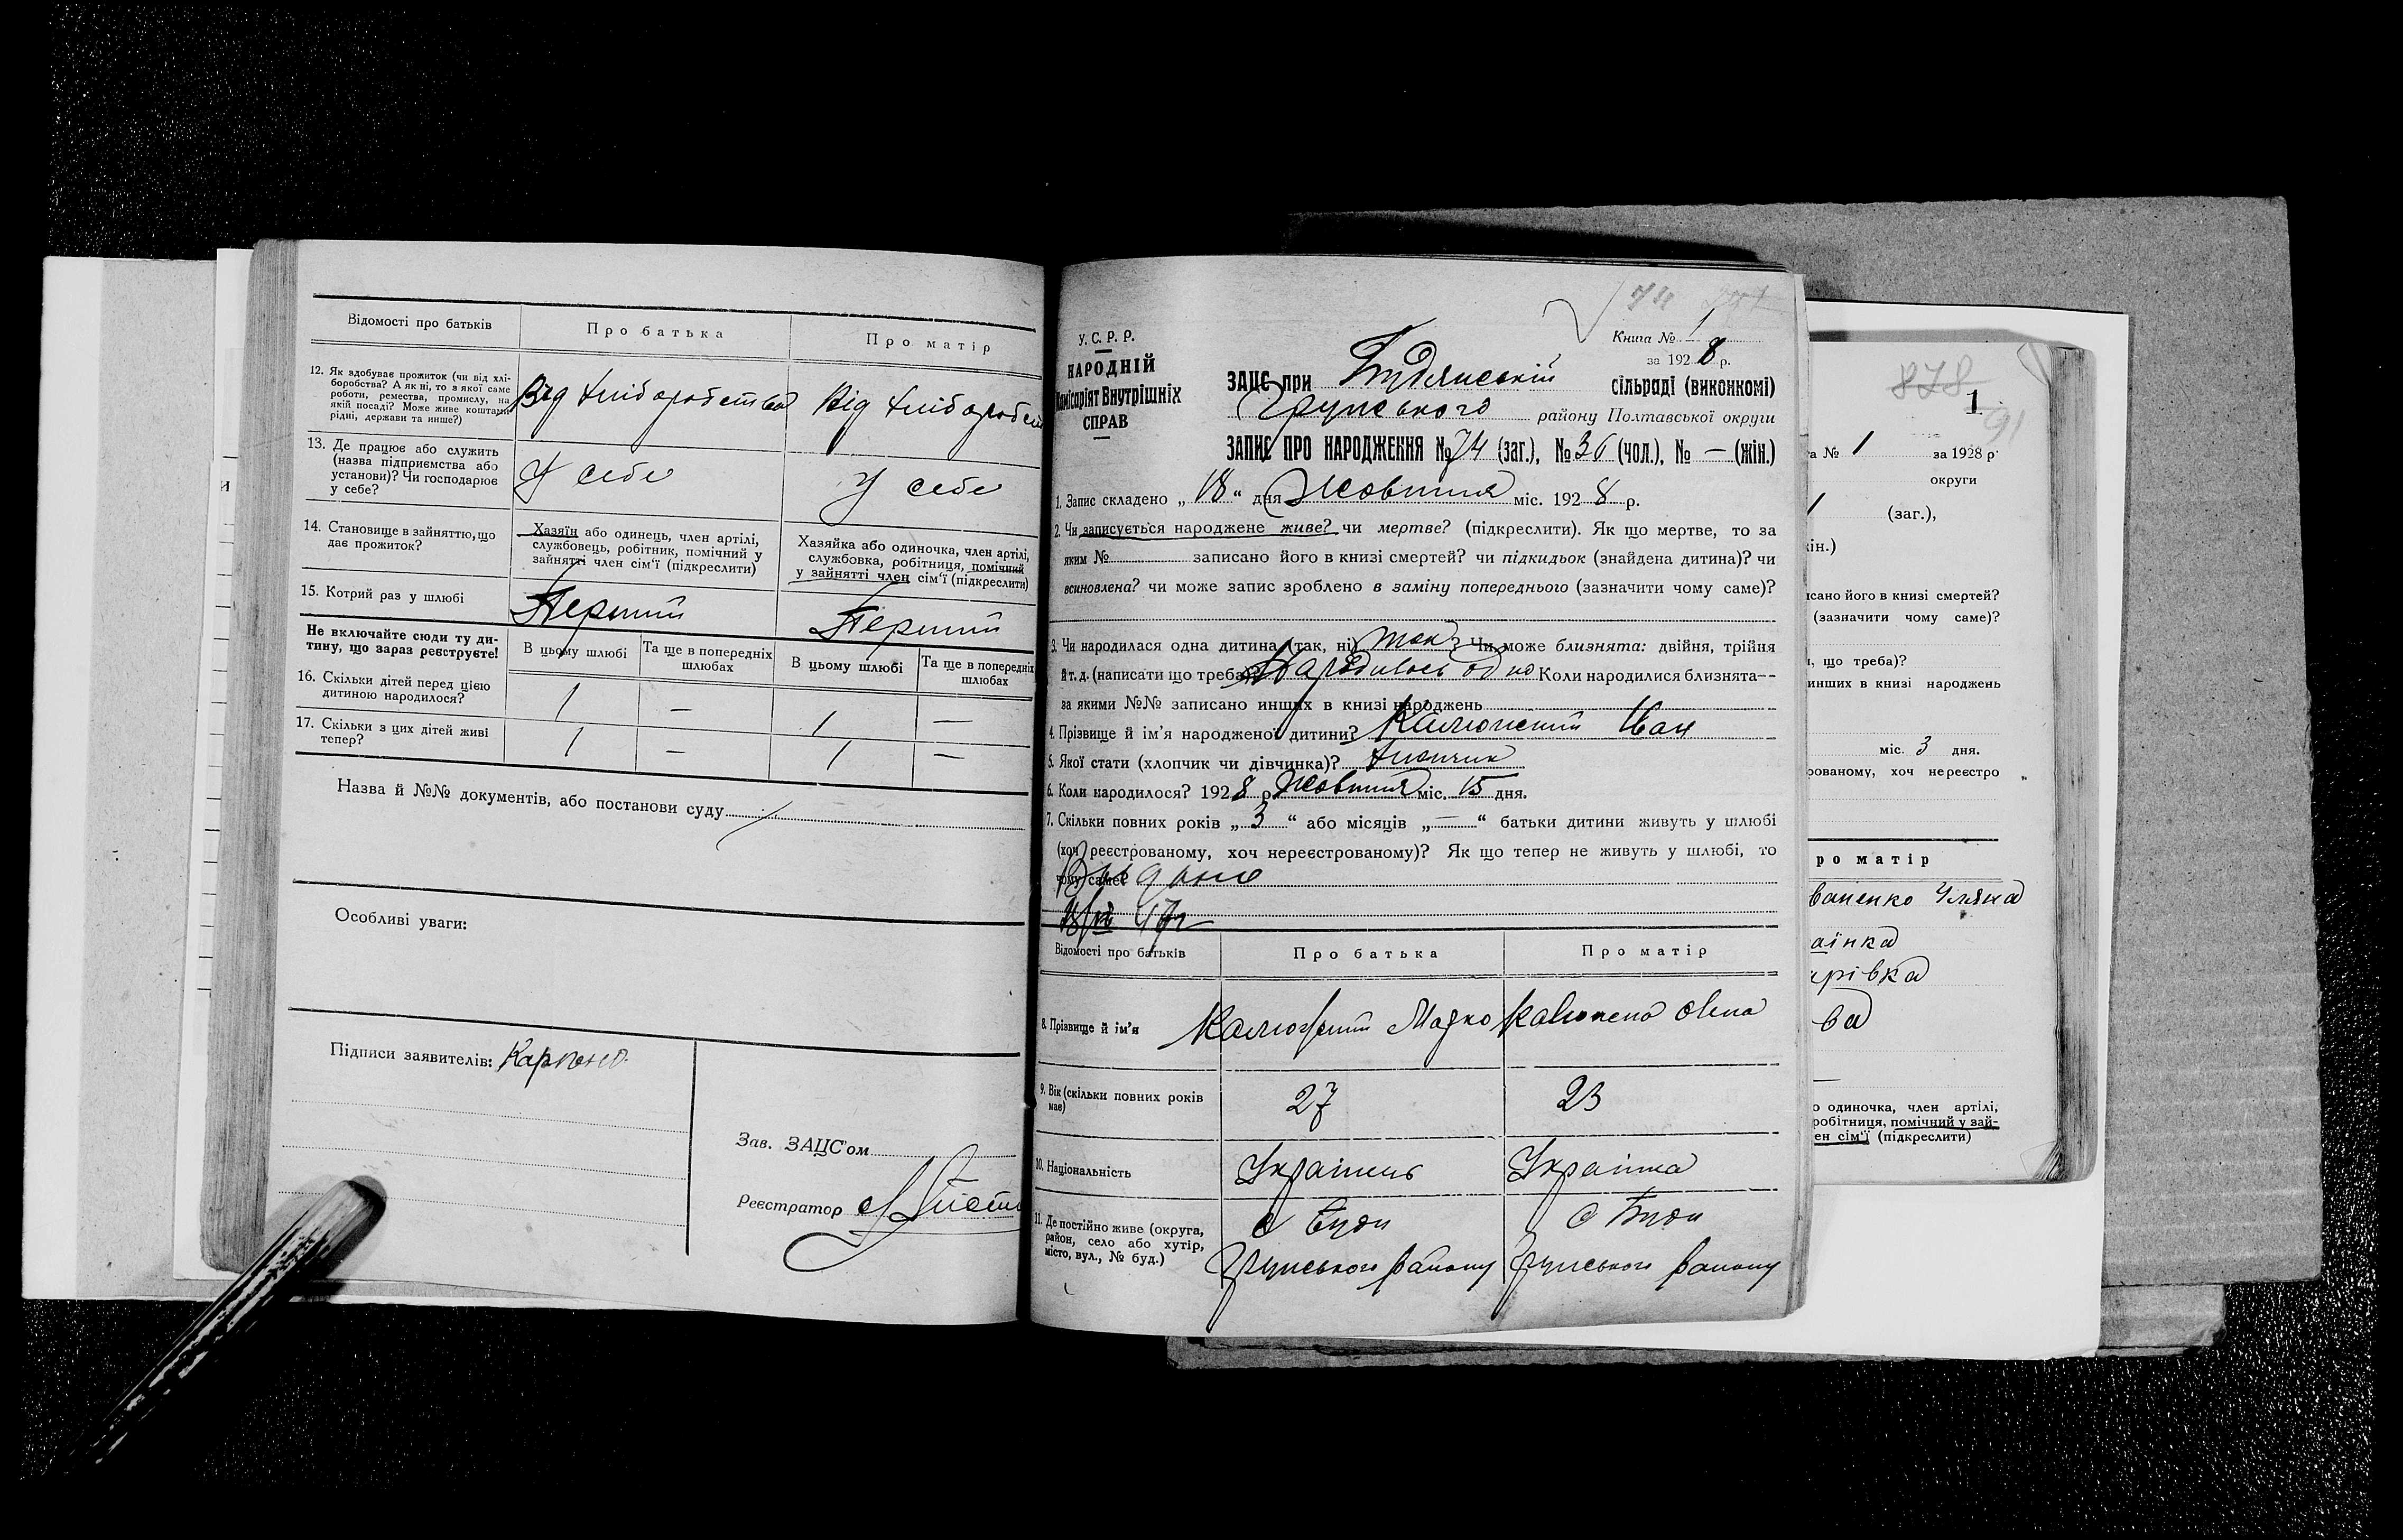 Відомості про батьків
Про батька
Про матір
12. Як здобуває прожиток (чи від хлі-
боробства? А як ні, то з якої саме
роботи, ремества, промислу, на
якій посаді? Може живе коштами
рідні, держави та инше?)
Від хліборобства
Від хлібороб
13. Де працює або служить
(назва підприємства або
установи)? Чи господарює
у себе?
У себе
У себе
14. Становище в зайняттю, що
дає прожиток?
Хазяїн або одинець, член артілі,
службовець, робітник, помічний у
зайнятті член сім'ї (підкреслити)
Хазяйка або одиночка, член артілі,
службовка, робітниця, помічний
у зайнятті член сім'ї (підкреслити)
15. Котрий раз у шлюбі
Перший
Перший
Не включайте сюди ту ди-
тину, що зараз реєструєте!
В цьому шлюбі
Та ще в попередніх
шлюбах
В цьому шлюбі
Та ще в попередніх
шлюбах
16. Скільки дітей перед цією
дитиною народилося?
1 — 1 —
17. Скільки з цих дітей живі
тепер?
1 — 1 —
Назва й №№ документів, або постанови суду
Особливі уваги:
Підписи заявителів:
Зав. ЗАЦС'ом
Реєстратор
74
У. С. Р. Р.
НАРОДНІЙ
Комісаріят Внутрішніх
СПРАВ
Книга № 1
за 1928 р.
ЗАЦС при Будянській сільраді (виконкомі)
Грунського району Полтавської округи
ЗАПИС ПРО НАРОДЖЕННЯ № 74 (заг.), № 36 (чол.), № — (жін.)
1. Запис складено „18“ дня Жовтня міс. 1928 р.
2. Чи записується народжене живе? чи мертве? (підкреслити). Як що мертве, то за
яким № записано його в книзі смертей? чи підкидьок (знайдена дитина)? чи
всиновлена? чи може запис зроблено в заміну попереднього (зазначити чому саме)?
3. Чи народилася одна дитина (так, ні) так? Чи може близнята: двійня, трійня
й т. д. (написати що треба)? Народилось одно Коли народилися близнята—
за якими №№ записано инших в книзі народжень
4. Прізвище й ім'я народженої дитини? Іван
5. Якої стати (хлопчик чи дівчинка)? хлопчик
6. Коли народилося? 1928 р. Жовтня міс. 15 дня.
7. Скільки повних років „3“ або місяців „—“ батьки дитини живуть у шлюбі
(хоч реєстрованому, хоч нереєстрованому)? Як що тепер не живуть у шлюбі, то
чому саме?
Відомості про батьків
Про батька
Про матір
8. Прізвище й ім'я
Марко
Олена
9. Вік (скільки повних років
має)
27
23
10. Національність
Українець
Українка
11. Де постійно живе (округа,
район, село або хутір,
місто, вул., № буд.)
с Буди
Грунського району
с Буди
Грунського району
878
1
91
а № 1 за 1928 р.
округи
1 (заг.),
ін.)
исано його в книзі смертей?
(зазначити чому саме)?
, що треба)?
инших в книзі народжень
міс. 3 дня.
рованому, хоч нереєстро
ро матір
ваненко Уляна
аїнка
арівка
ва
о одиночка, член артілі,
робітниця, помічний у зай-
ен сім'ї (підкреслити)